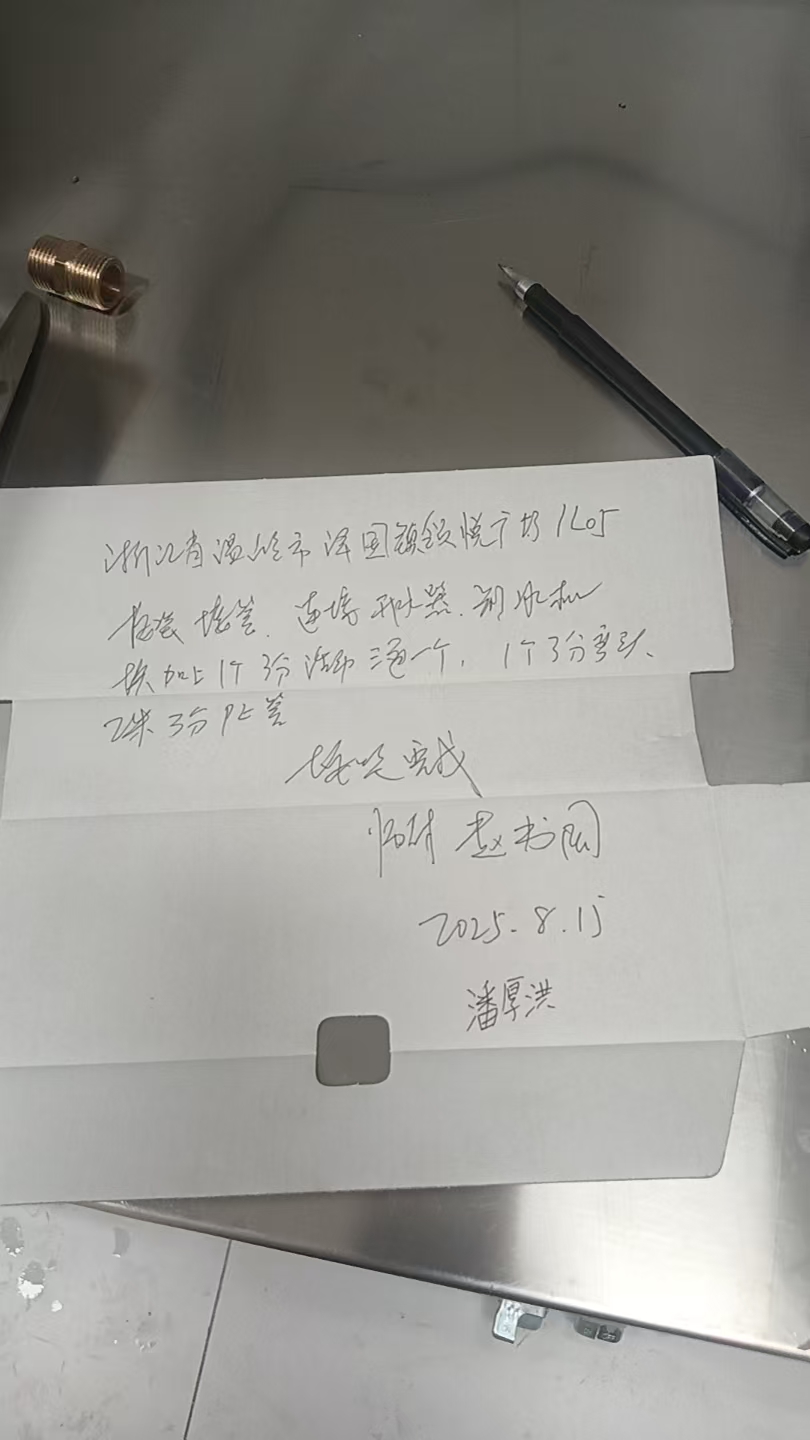 浙江省温岭市泽国镇银悦广场1L05
安装 接管、连接 开水器、制冰机
增加 1个3分 三通一个, 1个3分弯头、
2米3分PE管
完成
师付 赵书国
2025.8.15
潘厚洪